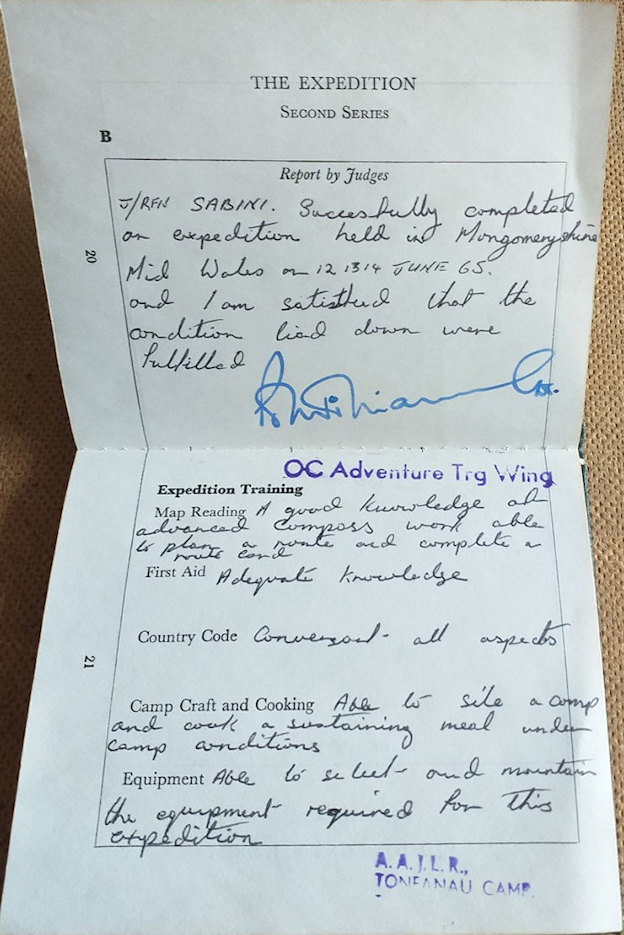 THE EXPEDITION
SECOND SERIES
B
Report by Judges
J/RFN SABINI. Succesfully completed
an expedition held in Mongomeryshire
Mid Wales on 12 13 14 JUNE 65.
and I am satisfied that the
condition liad down were
fulfilled
20
OC Adventure Trg Wing
Expedition Training
Map Reading A good knowledge of
advanced compass work able
to plan a route and complete a
route card
First Aid Adequate knowledge
Country Code Conversant all aspects
21
Camp Craft and Cooking Able to site a camp
and cook a sustaining meal under
camp conditions
Equipment Able to select and maintain
the equipment required for this
expedition
A.A.J.L.R.,
TONFANAU CAMP.